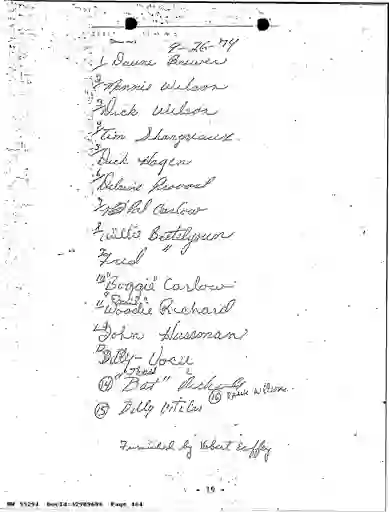 9-26-74
1 Duane Brewer
2 Mannie Wilson
3 Dick Wilson
4 Tim Shangreaux
5 Duck Hagen
6 Delaine Provost
7 Phil Carlow
8 Willie Bettelyoun
9 Fred "
10 "Boggie" Carlow
11 Woodie Richard
12 John Hussman
13 Billy -
14 "Bat"
16 Wilson
15 Billy
Furnished by Robert Ecoffey
- 19 -
NW 55294 DocId:32989696 Page 464